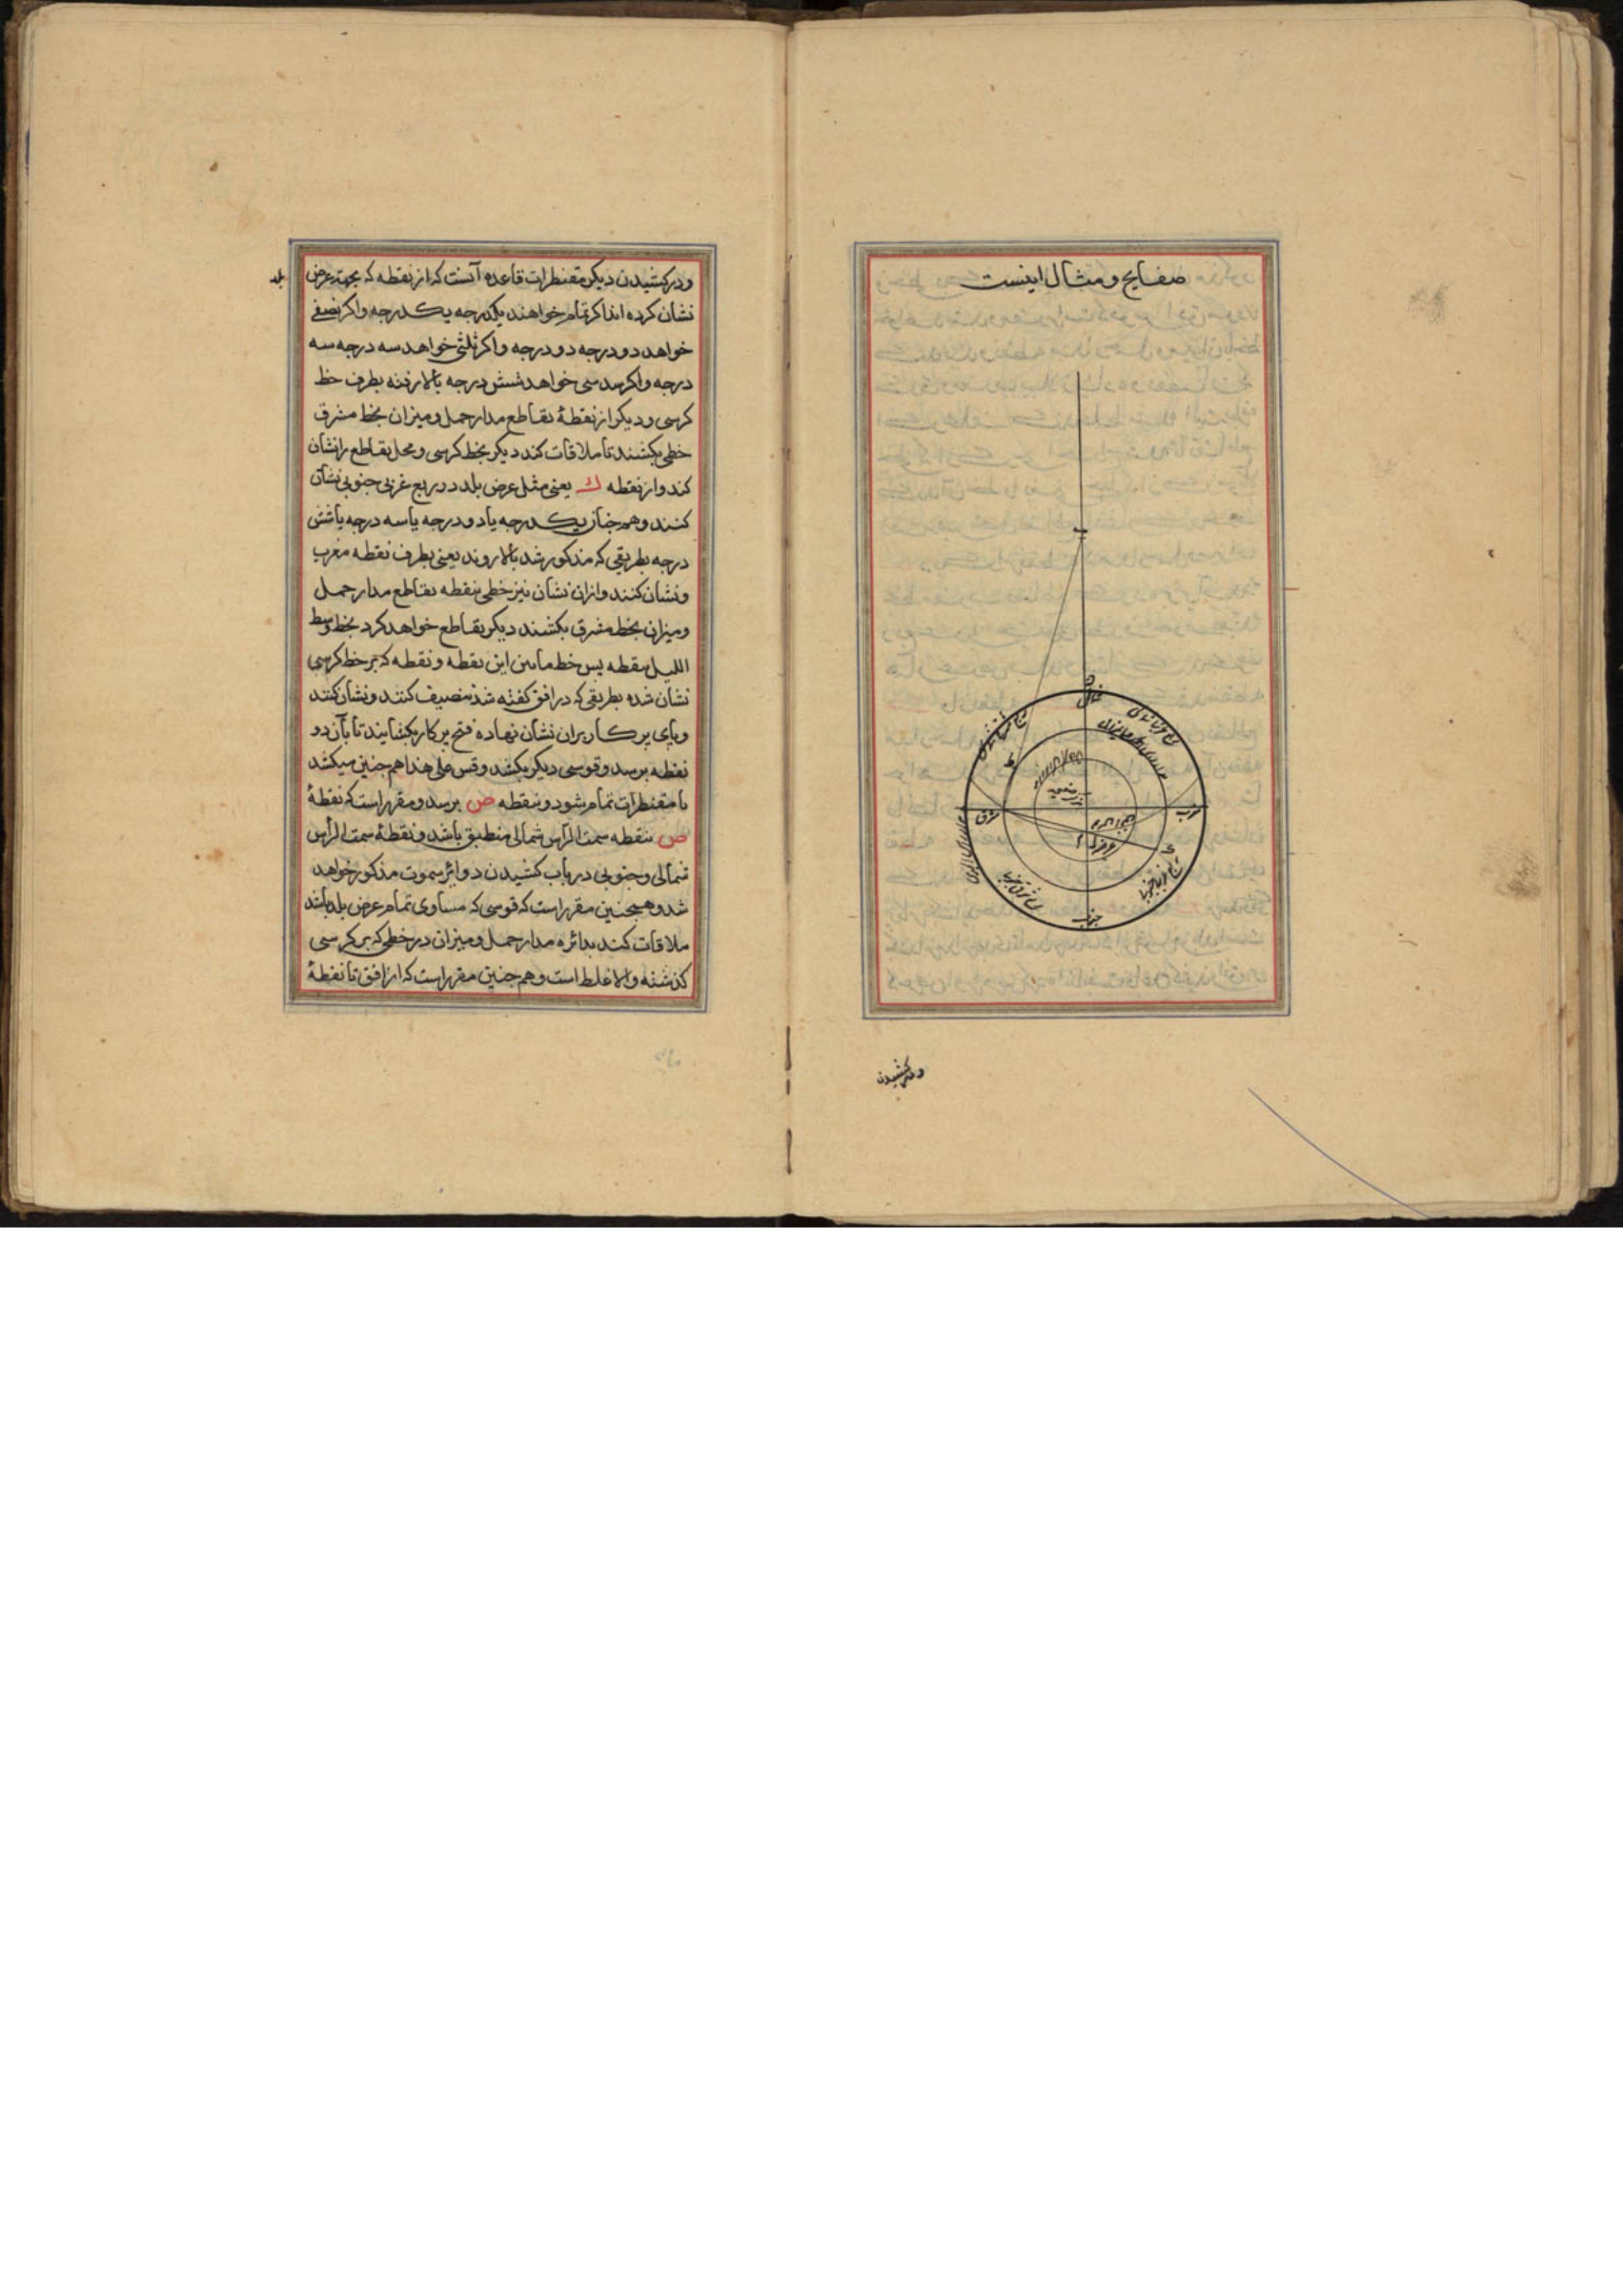 صفایح و مثال اینست
شمال
مشرق
مغرب
جنوب
ودر کشیدن
ودر کشیدن دیگر مقنطرات قاعده آنست که از نقطه که بجهة عرض بلد
نشان کرده اند اکر تمام خواهند یکدرجه یکدرجه واکر نصفی
خواهد دو درجه دو درجه واکر ثلثی خواهد سه درجه سه
درجه واکر سدسی خواهد شش درجه بالا رفته بطرف خط
کرسی ودیکر از نقطهٔ تقاطع مدار حمل ومیزان بخط مشرق
خطی بکشند تا ملاقات کند دیکر بخط کرسی ومحل تقاطع را نشان
کند واز نقطه ك یعنی مثل عرض بلد در ربع غربی جنوبی نشان
کنند وهم چنان یکدرجه یا دو درجه یا سه درجه یا شش
درجه بطریقی که مذکور شد بالا روند یعنی بطرف نقطه مغرب
ونشان کنند وازان نشان نیز خطی بنقطه تقاطع مدار حمل
ومیزان بخط مشرق بکشند دیکر تقاطع خواهد کرد بخط وسط
اللیل بنقطه پس خط مابین این نقطه ونقطه که بر خط کرسی
نشان شده بطریقی که در افق کفته شد تنصیف کنند ونشان کنند
وپای پرکار بران نشان نهاده فتح پرکار بکشایند تا بآن دو
نقطه برسد وقوسی دیکر بکشد وقس علی هذا هم چنین میکشد
تا مقنطرات تمام شود وبنقطه ص برسد ومقرر است که نقطهٔ
ص بنقطه سمت الرأس شمالی منطبق باشد ونقطهٔ سمت الرأس
شمالی وجنوبی در باب کشیدن دوایر سموت مذکور خواهد
شد وهمچنین مقرر است که قوسی که مساوی تمام عرض بلد باشد
ملاقات کند بدائره مدار حمل ومیزان در خطی که بر کرسی
کذشته والا غلط است وهم چنین مقرر است که از افق تا نقطهٔ